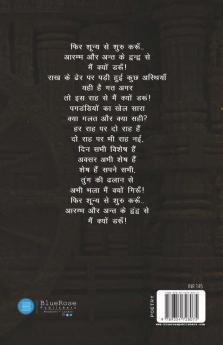 फिर शून्य से शुरु करूँ..
आरम्भ और अन्त के द्वन्द्व से
मैं क्यों डरूँ!
राख के ढेर पर पड़ी हुई कुछ अस्थियाँ
यही है गत अगर
तो इस राह से मैं क्यों डरूं!
पगडंडियों का खेल सारा
क्या गलत और क्या सही?
हर राह पर दो राह हैं
दो राह पर भी राह नई,
दिन सभी विशेष हैं
अवसर अभी शेष हैं
शेष हैं सपने सभी,
तुंग की ढलान से
अभी भला मैं क्यों गिरूँ!
फिर शून्य से शुरु करूँ..
आरम्भ और अन्त के द्वंद्व से
मैं क्यों डरूँ!
BlueRose
Publishers
POETRY
INR 145